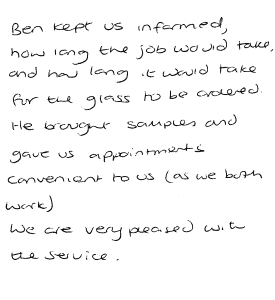 Ben kept us informed,
how long the job would take,
and how long it would take
for the glass to be ordered.
He brought samples and
gave us appointments
convenient to us (as we both
work)
We are very pleased with
the service.